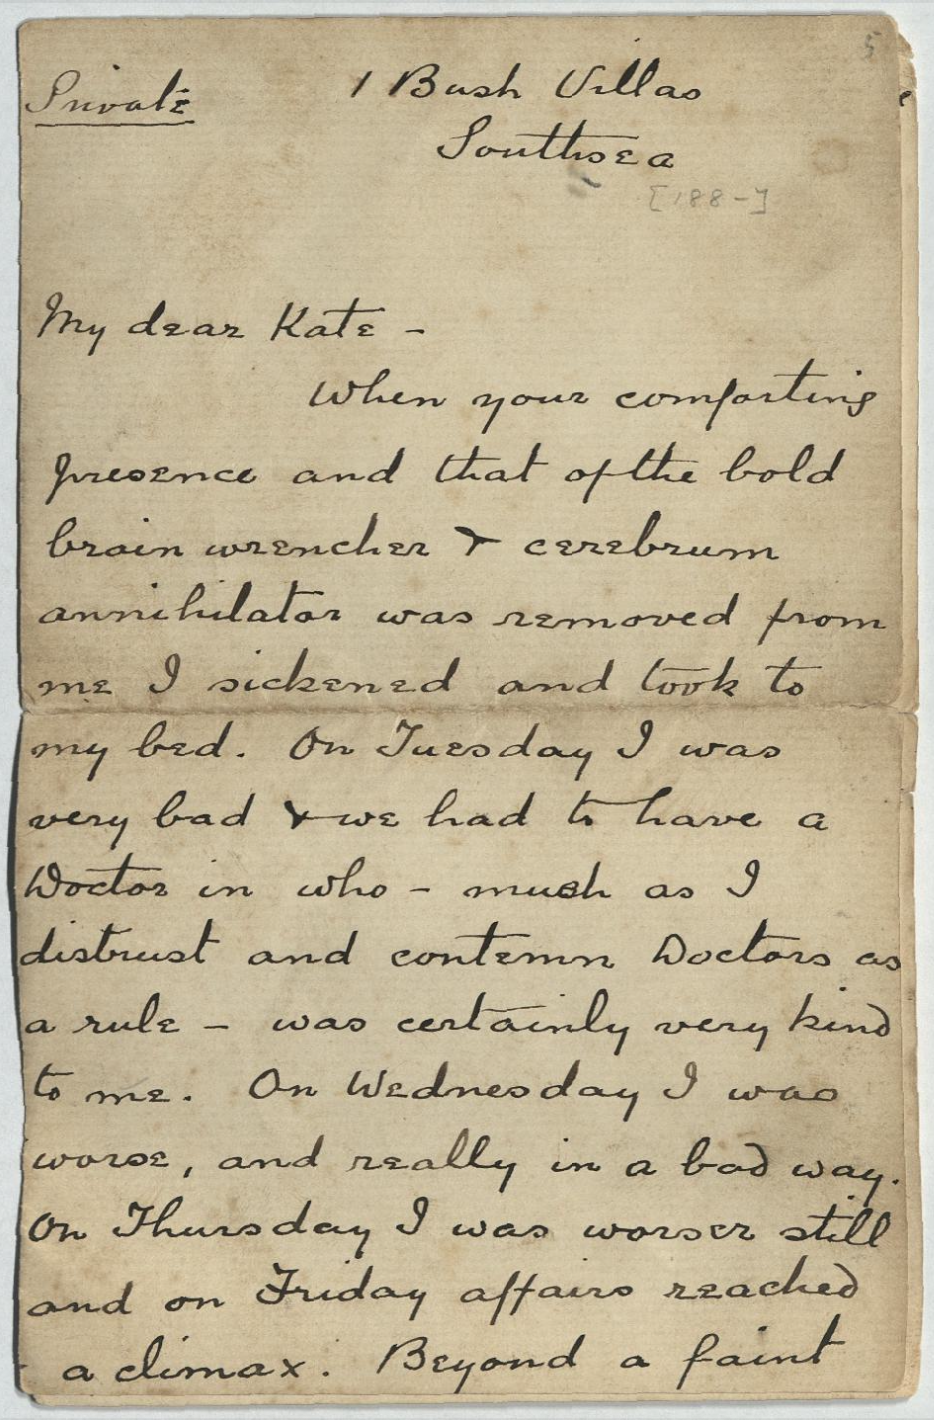 5
Private 1 Bush Villas
Southsea
[188-]
My dear Kate -
When your comforting
presence and that of the bold
brain wrencher & cerebrum
annihilator was removed from
me I sickened and took to
my bed. On Tuesday I was
very bad & we had to have a
Doctor in who - much as I
distrust and contemn Doctors as
a rule - was certainly very kind
to me. On Wednesday I was
worse, and really in a bad way.
On Thursday I was worser still
and on Friday affairs reached
a climax. Beyond a faint